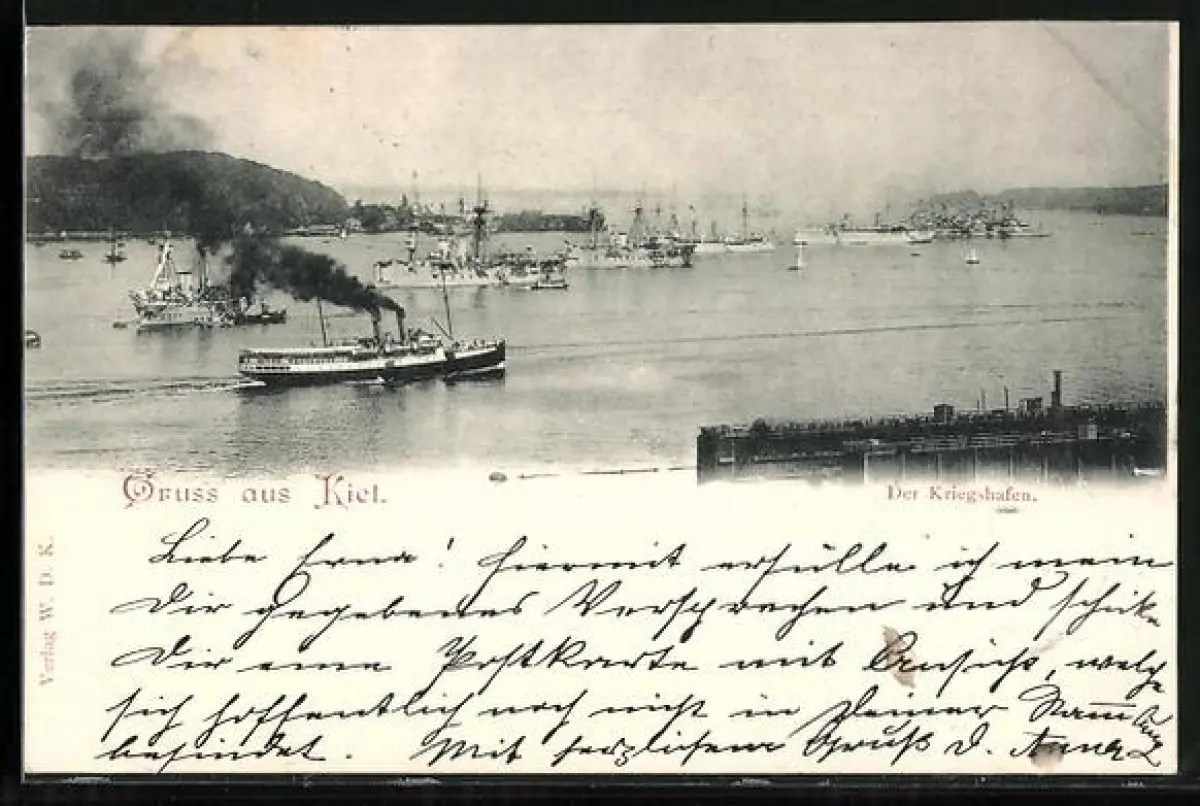 Gruss aus Kiel.
Der Kriegshafen.
Verlag W. D. K.
Liebe Erna! Hiermit erfülle ich mein
Dir gegebenes Versprechen und schicke
Dir eine Postkarte mit Ansicht, welche
sich hoffentlich noch nicht in Deiner
befindet. Mit herzlichem Gruß D. Anna